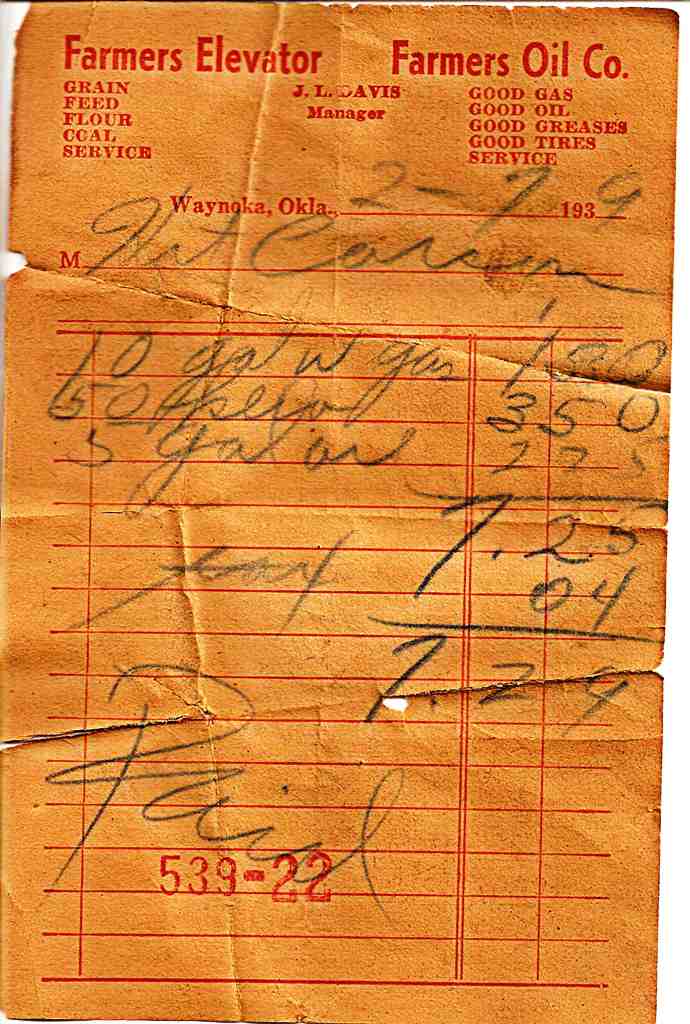 Farmers Elevator Farmers Oil Co.
GRAIN
FEED
FLOUR
COAL
SERVICE
J. L. DAVIS
Manager
GOOD GAS
GOOD OIL
GOOD GREASES
GOOD TIRES
SERVICE
Waynoka, Okla., 2-7 1939
M Carson
10 gal gas 1 00
50 3 50
5 gal oil 2 75
7.25
tax 04
7.29
Paid
539-22